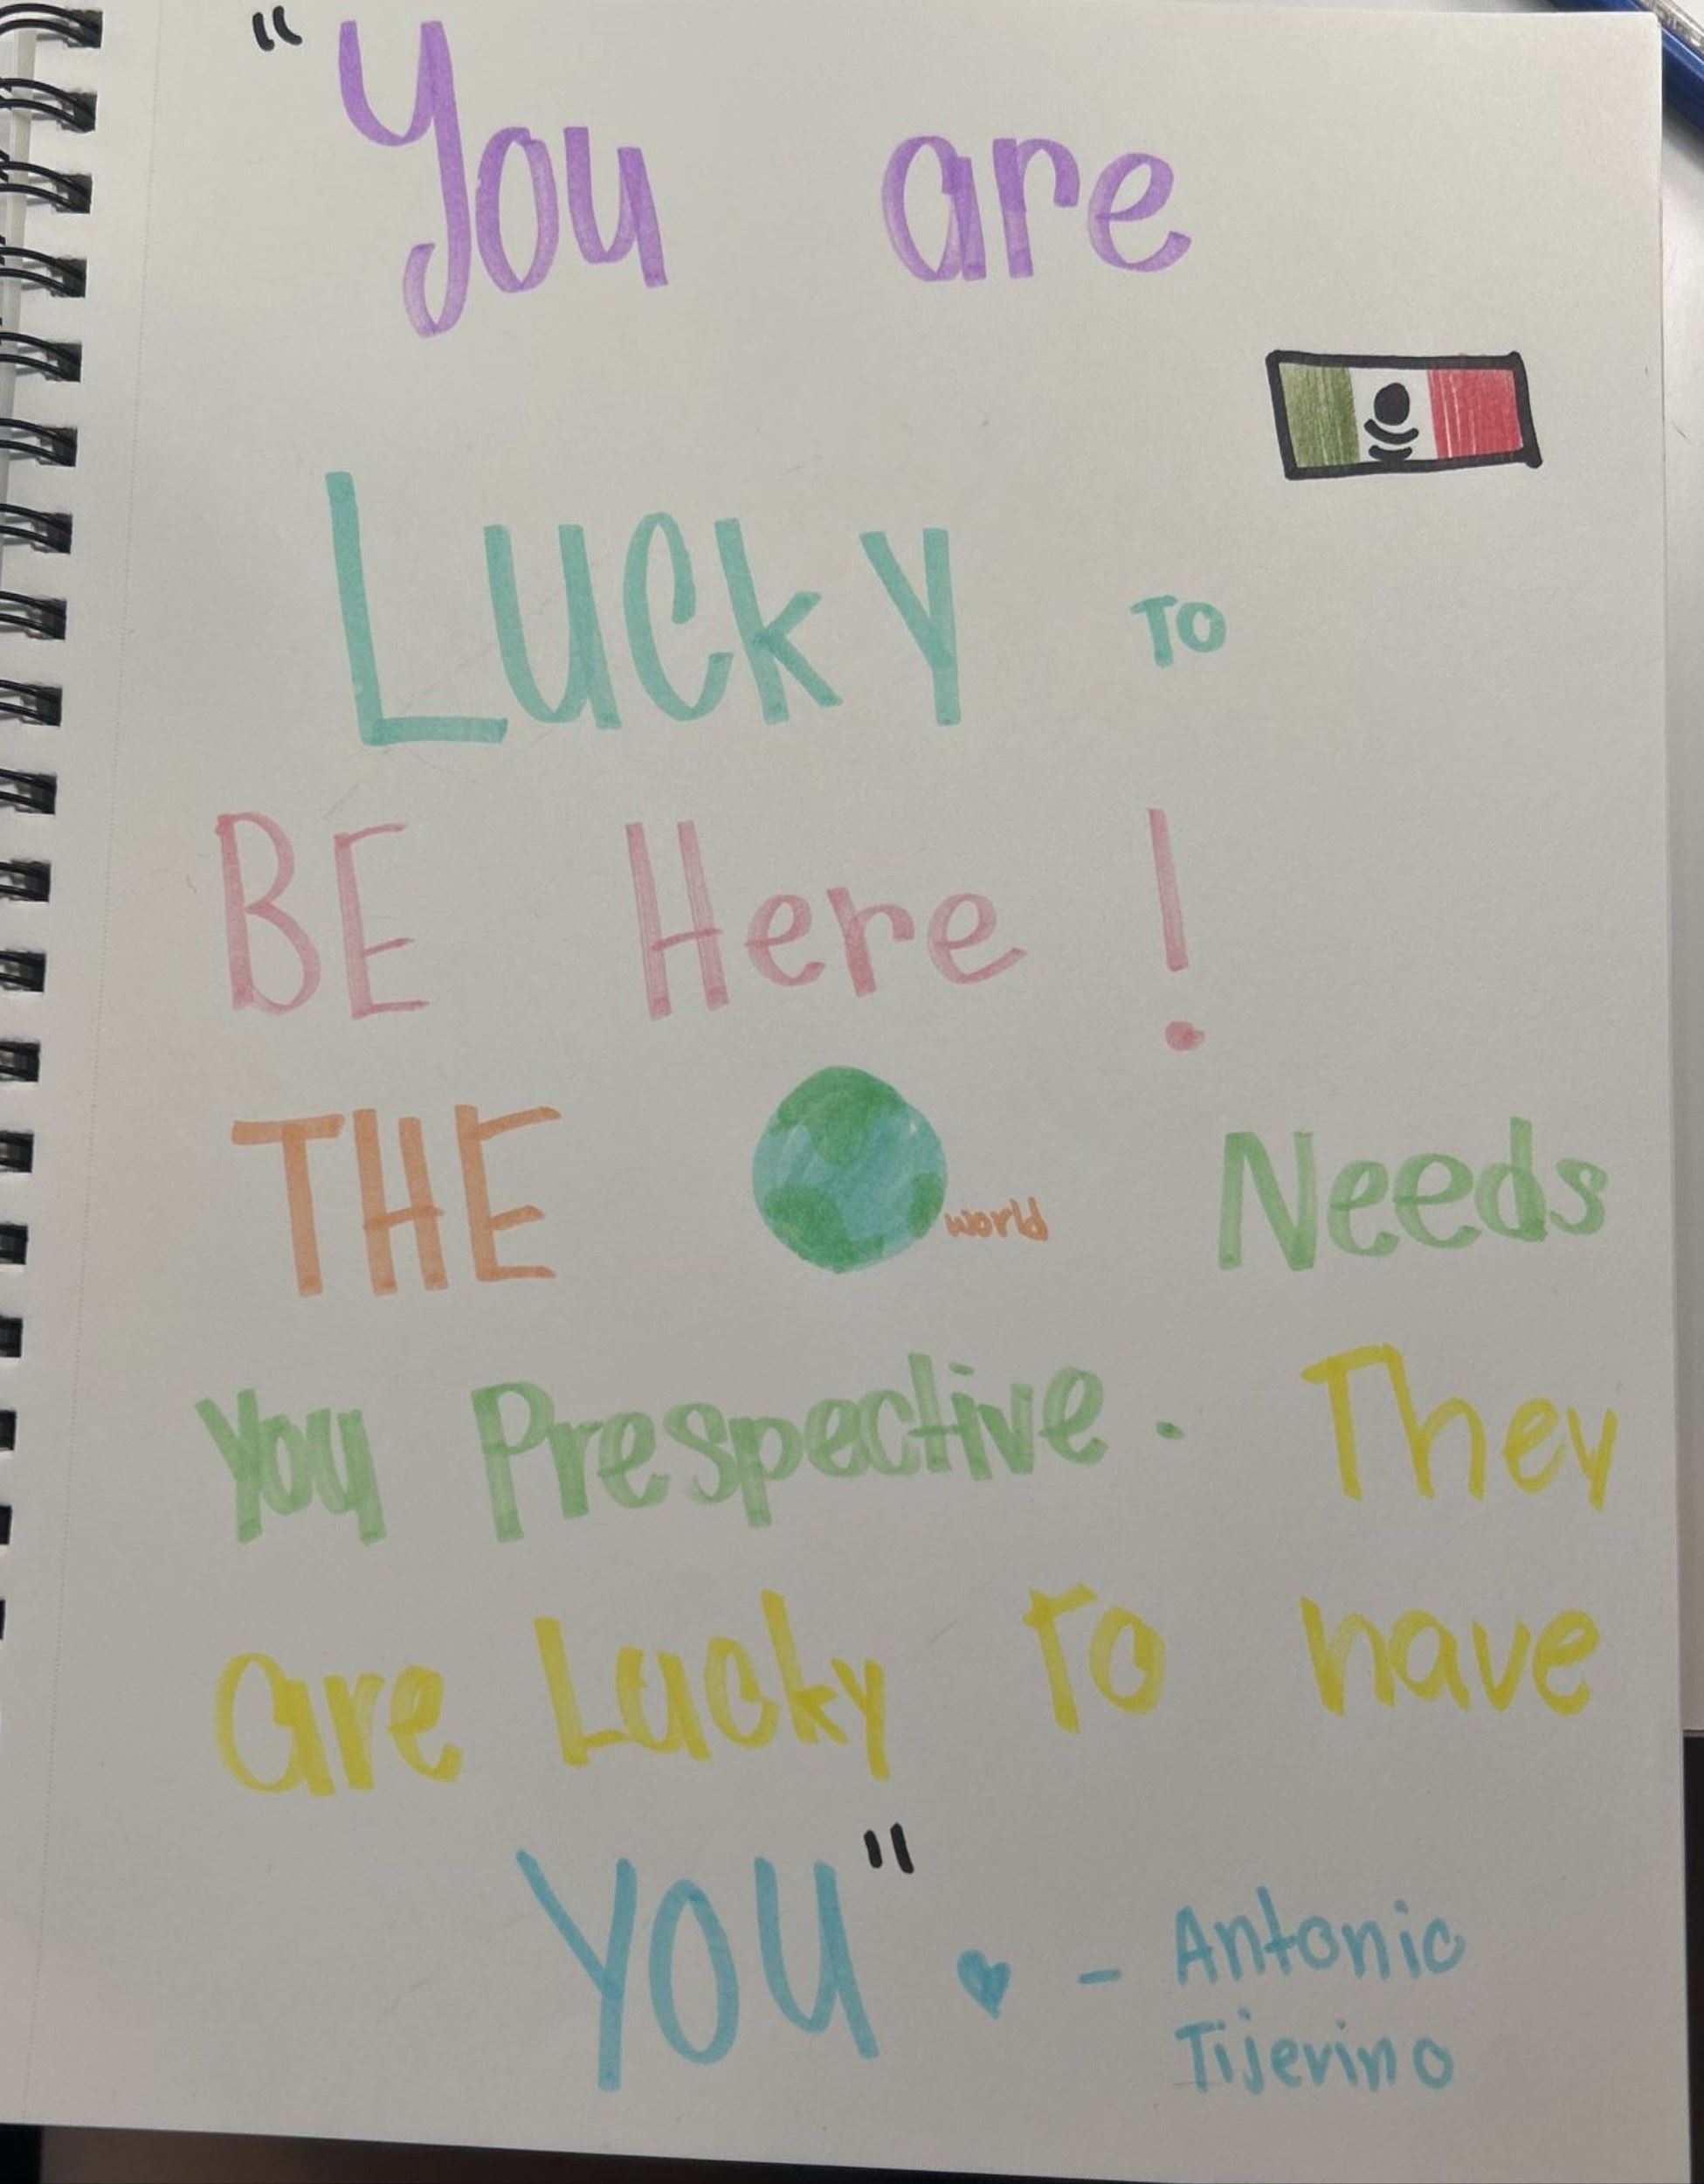 "You are
LUCKY TO
BE Here !
THE world Needs
You Prespective. They
are Lucky To have
YOU" - Antonio
Tijerino